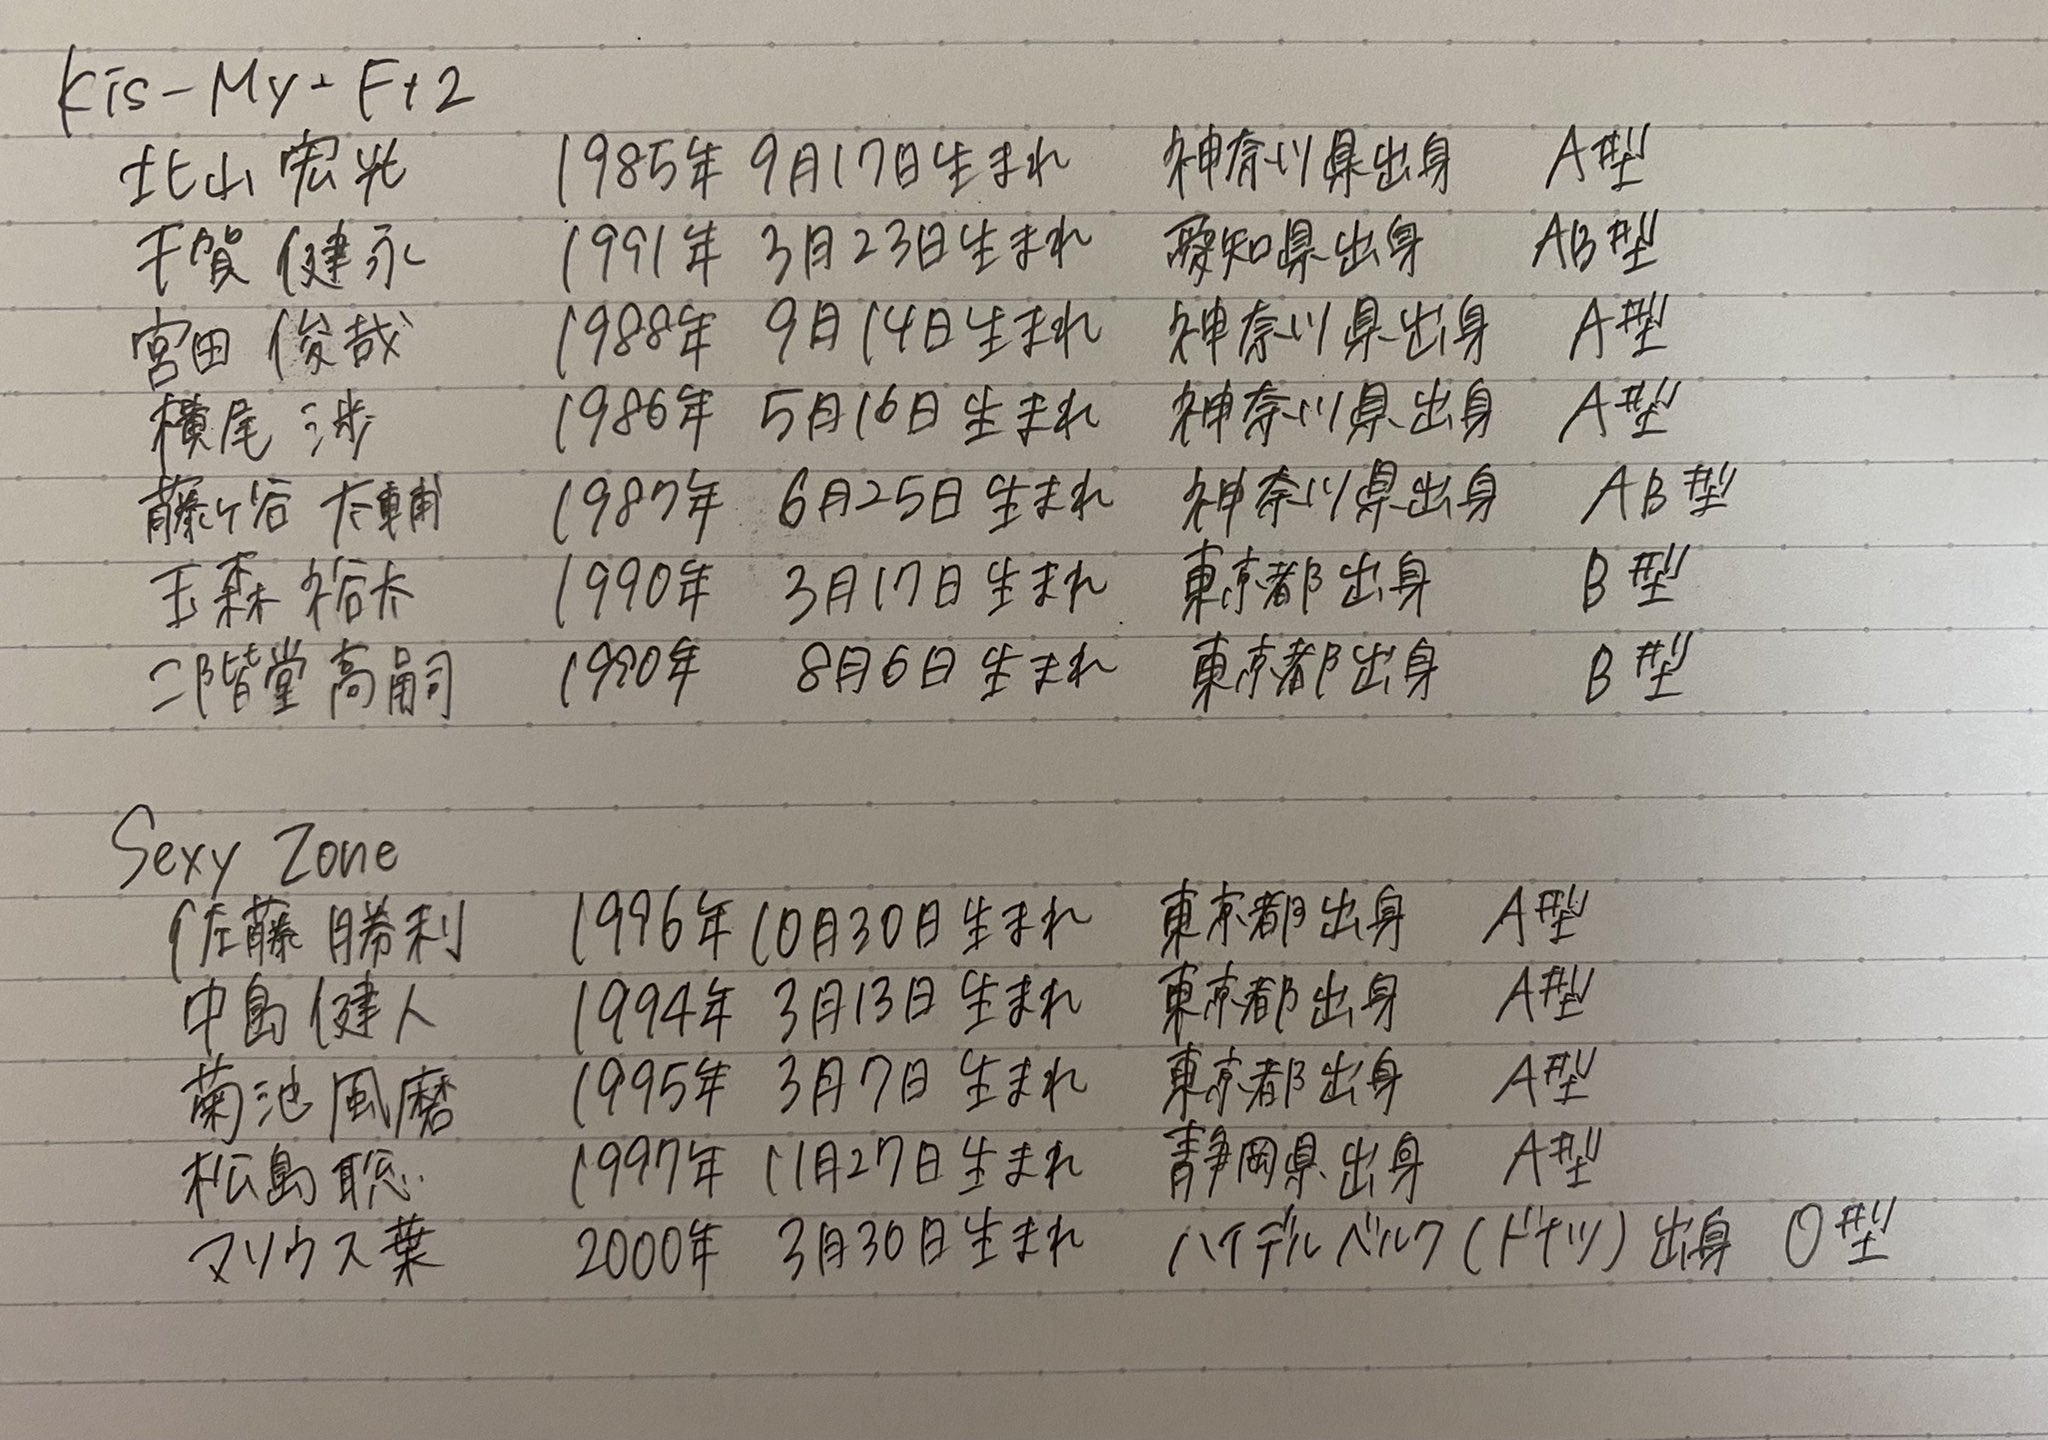 Kis-My-Ft2
北山 宏光 1985年 9月17日生まれ 神奈川県出身 A型
千賀 健永 1991年 3月23日生まれ 愛知県出身 AB型
宮田 俊哉 1988年 9月14日生まれ 神奈川県出身 A型
横尾 渉 1986年 5月16日生まれ 神奈川県出身 A型
藤ヶ谷 太輔 1987年 6月25日生まれ 神奈川県出身 AB型
玉森 裕太 1990年 3月17日生まれ 東京都出身 B型
二階堂 高嗣 1990年 8月6日生まれ 東京都出身 B型
Sexy Zone
佐藤 勝利 1996年 10月30日生まれ 東京都出身 A型
中島 健人 1994年 3月13日生まれ 東京都出身 A型
菊池 風磨 1995年 3月7日生まれ 東京都出身 A型
松島 聡 1997年 11月27日生まれ 静岡県出身 A型
マリウス葉 2000年 3月30日生まれ ハイデルベルク(ドイツ)出身 O型